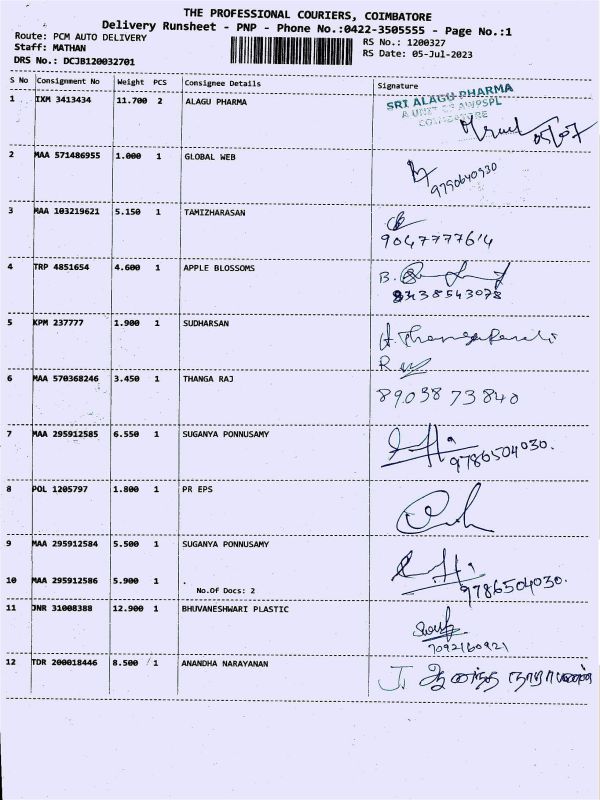 THE PROFESSIONAL COURIERS, COIMBATORE
Delivery Runsheet - PNP - Phone No.:0422-3505555 - Page No.:1
Route: PCM AUTO DELIVERY
Staff: MATHAN
DRS No.: DCJB120032701
RS No.: 1200327
RS Date: 05-Jul-2023
S No Consignment No Weight PCS Consignee Details Signature
1 IXM 3413434 11.700 2 ALAGU PHARMA
SRI ALAGU PHARMA
A UNIT OF AWPSPL
COIMBATORE
05/07
2 MAA 571486955 1.000 1 GLOBAL WEB
9790640930
3 MAA 103219621 5.150 1 TAMIZHARASAN
9047777614
4 TRP 4851654 4.600 1 APPLE BLOSSOMS
B.
8438543078
5 KPM 237777 1.900 1 SUDHARSAN
6 MAA 570368246 3.450 1 THANGA RAJ
8903873840
7 MAA 295912585 6.550 1 SUGANYA PONNUSAMY
9786504030.
8 POL 1205797 1.800 1 PR EPS
9 MAA 295912584 5.500 1 SUGANYA PONNUSAMY
10 MAA 295912586 5.900 1 .
No.Of Docs: 2
9786504030.
11 JNR 31008388 12.900 1 BHUVANESHWARI PLASTIC
7092160921
12 TDR 200018446 8.500 1 ANANDHA NARAYANAN
J. ஆனந்த நாராயணன்